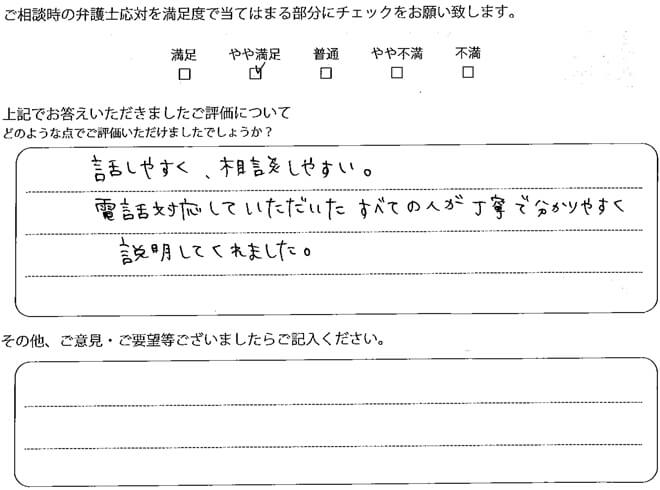 ご相談時の弁護士応対を満足度で当てはまる部分にチェックをお願い致します。
満足 やや満足 普通 やや不満 不満
□ ☑ □ □ □
上記でお答えいただきましたご評価について
どのような点でご評価いただけましたでしょうか?
話しやすく、相談しやすい。
電話対応していただいたすべての人が丁寧で分かりやすく
説明してくれました。
その他、ご意見・ご要望等ございましたらご記入ください。